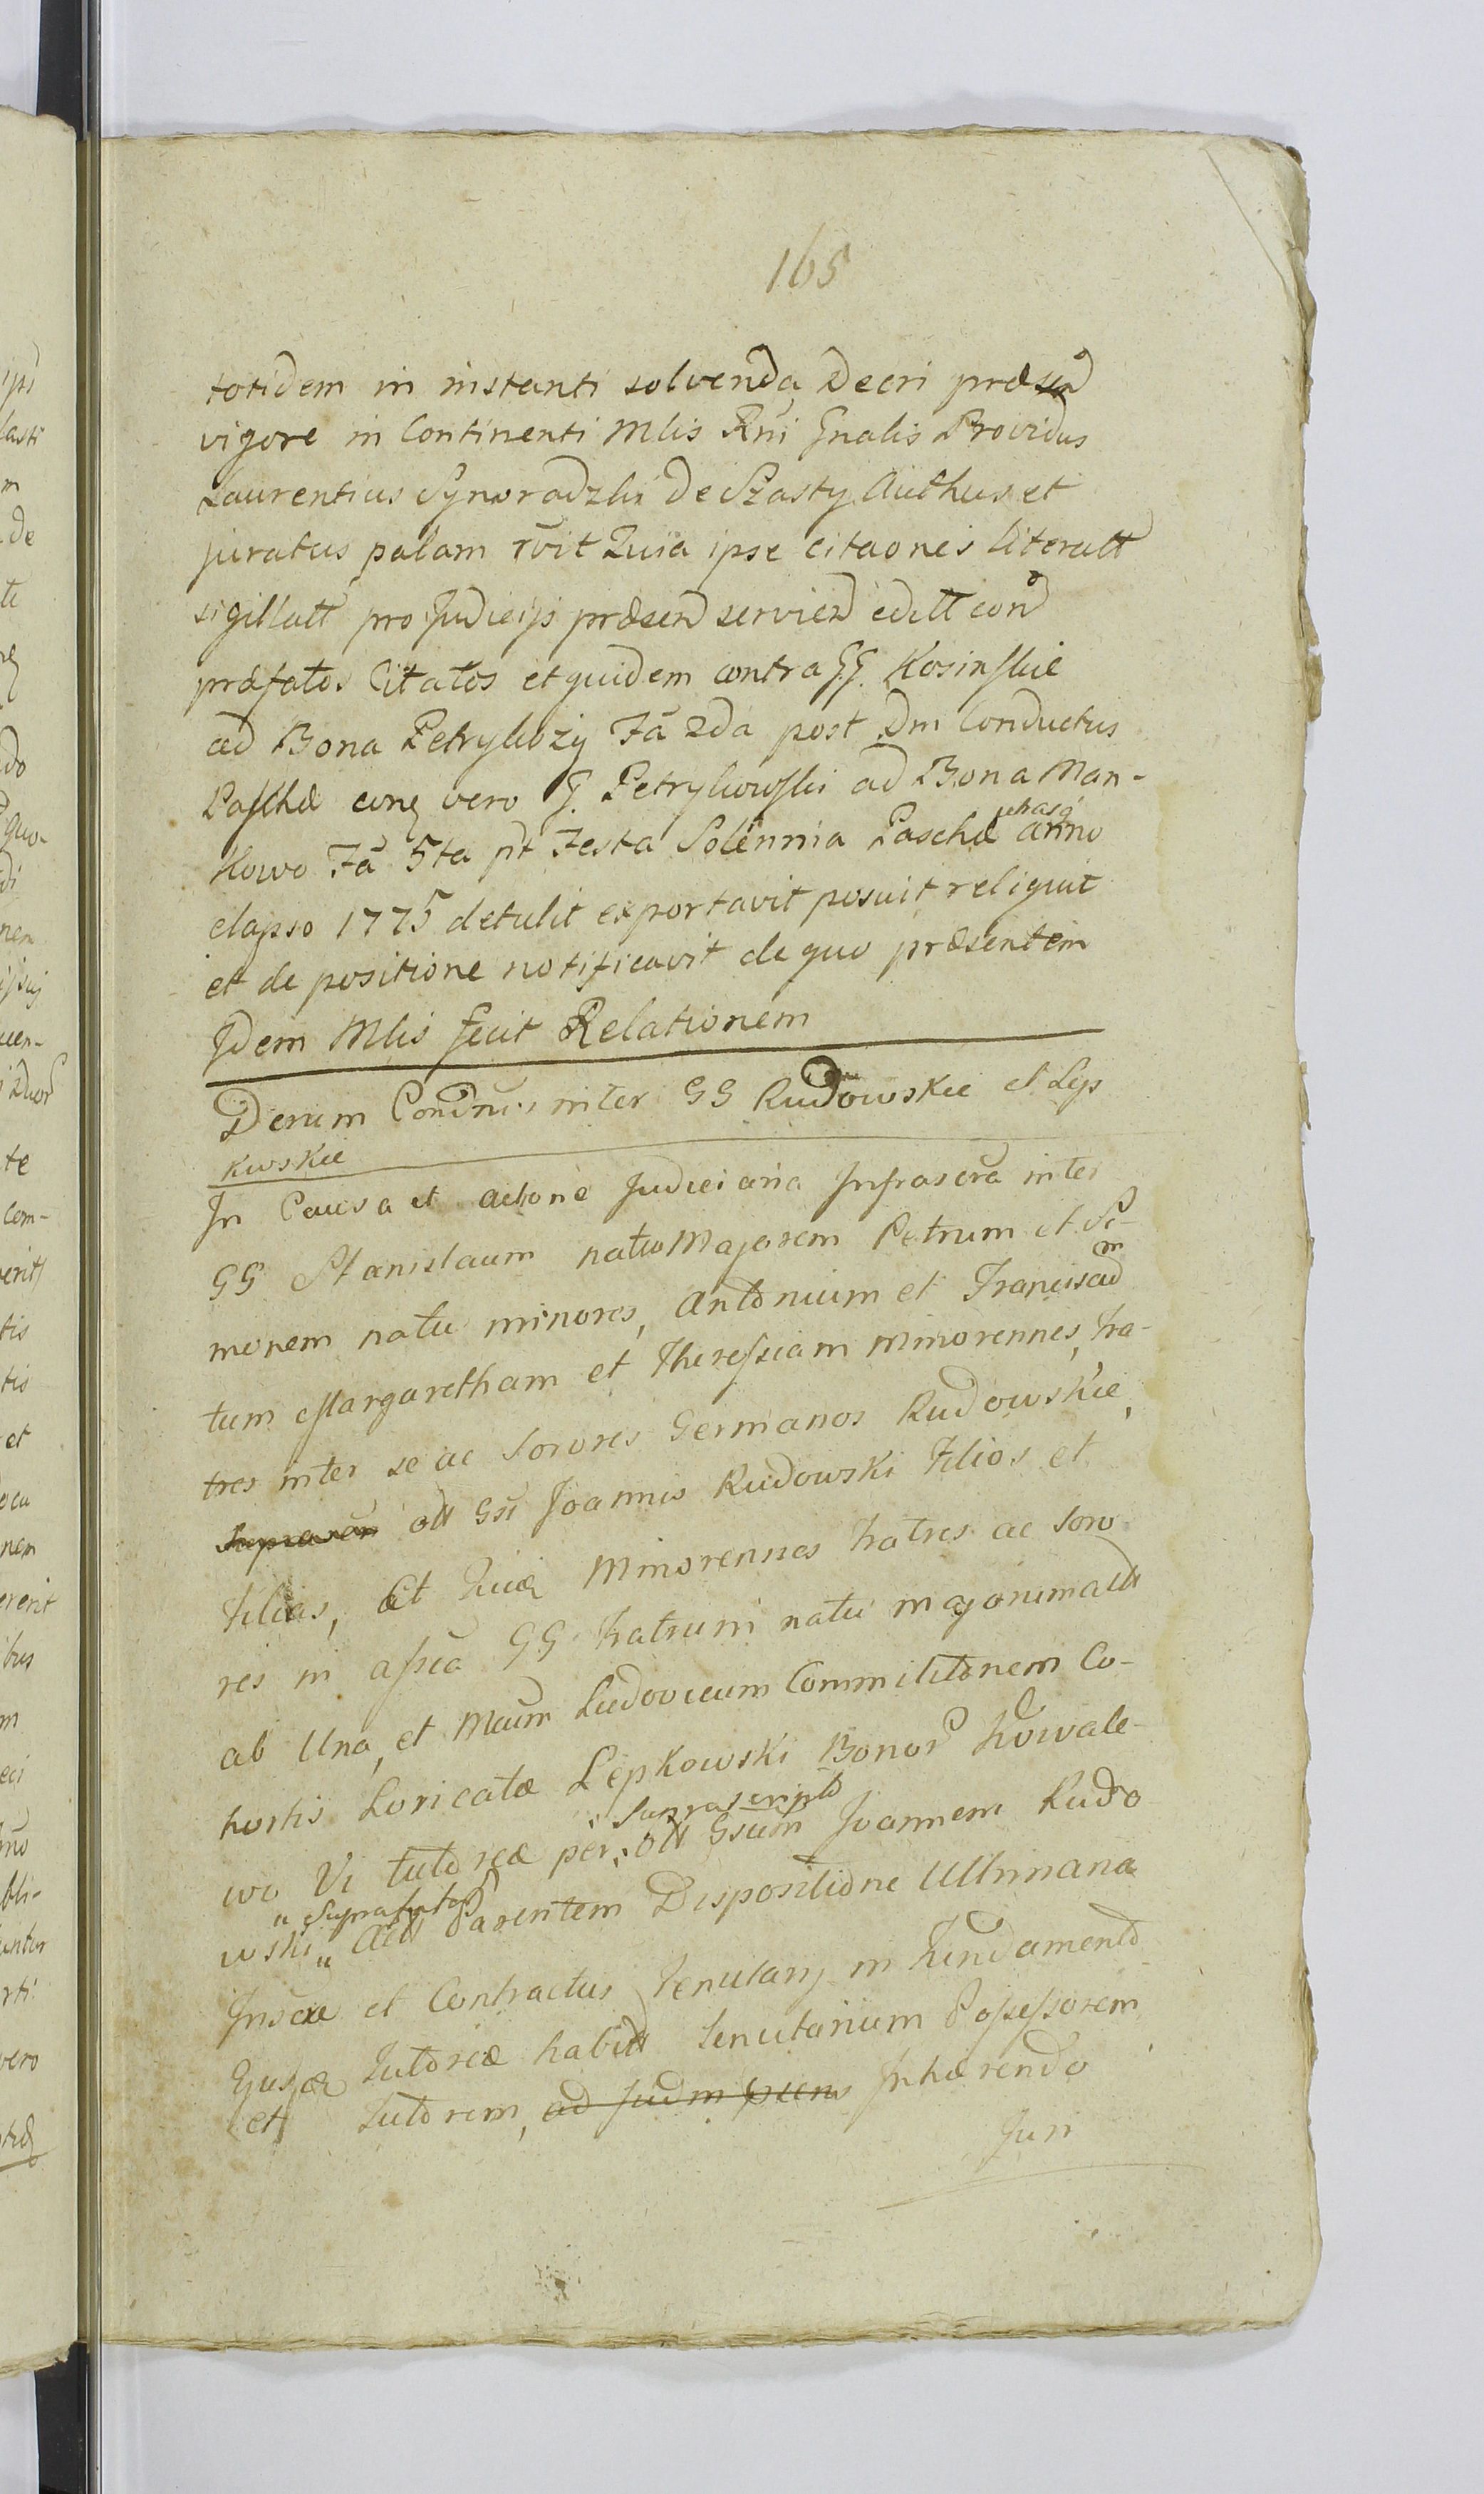 165
totidem in instanti solvenda Decri præsen
vigore in Continenti Mlis Rni Gnalis Providus
Laurentius Synoradzki de Szasty Authus et
juratus palam rvit Quia ipse citaones literatt
sigillatt pro Judicijs præsen servien editt con
præfatos Citatos et quidem contra GG. Kosinskie
ad Bona Petrykozy Fa 2da post Dm Conductus
Paschæ eonq vero G. Petrykowski ad Bona Man-
kowo Fa 5ta pt Festa Solennia Paschæ anno
elapso 1775 detulit exportavit posuit reliquit
et de positione notificavit de quo præsentem
Idem Mlis fecit Relationem
Derum Condnis inter GG Rudowskie et Lep
kwskie
In Causa et actione Judiciaria Infrascra inter
GG Stanislaum natu Majorem Petrum et Si-
monem natu minores, Antonium et Franciscum
tum Margaretham et Theressiam Minorennes, Fra-
tres inter se ac Sorores Germanos Rudowskie,
ott Gsi Joannis Rudowski Filios et
Filias, At Quia Minorennes Fratres ac Soro
res in assia GG Fratrum natu majorum actt
ab Una, et Mcum Ludovicum Commilitonem Co-
hortis Loricatæ Lepkowski Bonor Kowale-
suprascripto
wo Vi tutoreæ per ott Gsum Joannem Rudo
wski Actt Parentem Dispositione Ultimana
Inscae et Contractus Tenutarij in Fundamento
Ejusq Tutoreæ habitt Tenutarium Possessorem
et Tutorem, ad Judm psens Inhærendo
Juri